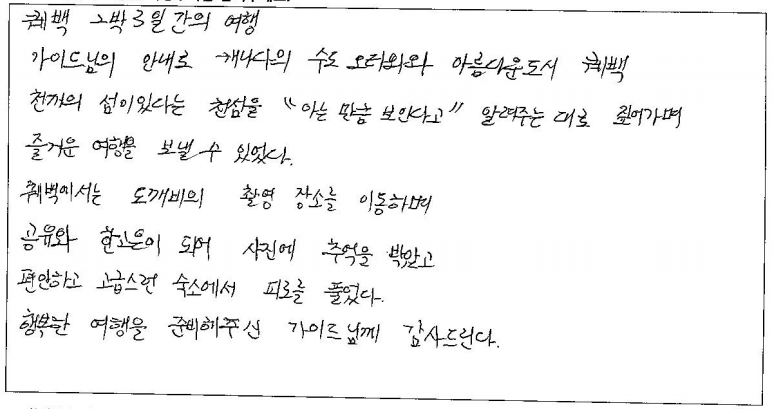 퀘백 2박3일간의 여행
가이드님의 안내로 캐나다의 수도 오타와와 아름다운도시 퀘백
천개의 섬이있다는 천섬을 "아는 만큼 보인다고" 알려주는 대로 짚어가며
즐거운 여행을 보낼 수 있었다.
퀘백에서는 도깨비의 촬영 장소를 이동하며
공유와 김고은이 되어 사진에 추억을 박았고
편안하고 고급스런 숙소에서 피로를 풀었다.
행복한 여행을 준비해주신 가이드님께 감사드린다.